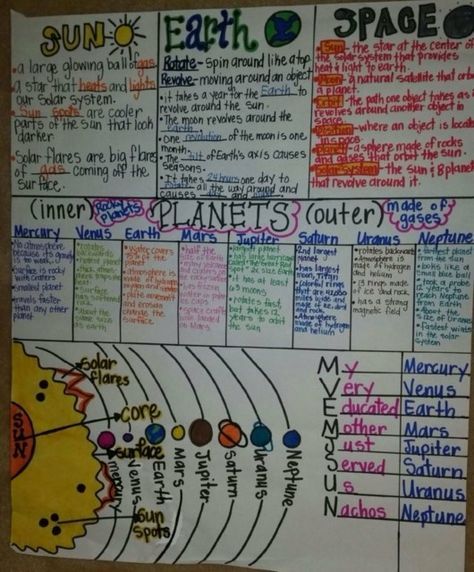 SUN
a large glowing ball of gas
a star that heats and lights
our Solar System.
Sun spots are cooler
parts of the Sun that look
darker
Solar flares are big flares
of gas coming off the
surface.
Earth
Rotate- Spin around like a top.
Revolve- moving around an object
it takes a year for the Earth to
revolve around the Sun.
The moon revolves around the
Earth.
One revolution of the moon is one
month.
The tilt of Earth's axis causes
seasons.
It takes 24 hours/one day to
rotate all the way around and
causes
SPACE
Sun - the star at the center of
the solar system that provides
heat & light to earth.
Moon - a natural satellite that
a planet.
Orbit - the path one object takes as
revolves around another object in
space.
Position - where an object is located
in space.
Planet - a sphere made of rocks
and gases that orbit the sun.
Solar System - the sun & 8 planets
that revolve around it.
(inner) Rocky Planets PLANETS (outer) made of gases
Mercury
No atmosphere
because its gravity
is too weak
Surface is rocky
with craters
Smallest planet
travels faster
than any other
planet
Venus
rotates
backwards
surface has
about the
same size
as earth
Earth
water covers
of the
atmosphere is
made of
oxygen
and change the
surface
Mars
half the
size of Earth
craters
on rocky
surface
has frozen
water in polar
caps
space craft
have landed
on Mars
Jupiter
largest planet
has large hurricane
called "the great red
spot" 2x size Earth
it has at least
63 moons
rotates fast
but takes
12 years
to orbit
the sun
Saturn
2nd largest
planet
has largest
rings
colorful rings
that are
miles
wide and
made of ice
and rock
Atmosphere
made of hydrogen
and helium
Uranus
rotates backwards
Atmosphere is
made of hydrogen
and helium
13 rings made
of ice and rock
has a strong
magnetic field
Neptune
planet
from the sun
blue in color
took a probe
years to
reach Neptune
from Earth
About the
size of Uranus
Fastest winds
in the solar
system
Solar flares
Core
Surface
Sun Spots
SUN
Mercury
Venus
Earth
Mars
Jupiter
Saturn
Uranus
Neptune
My Mercury
Very Venus
Educated Earth
Mother Mars
Just Jupiter
Served Saturn
Us Uranus
Nachos Neptune